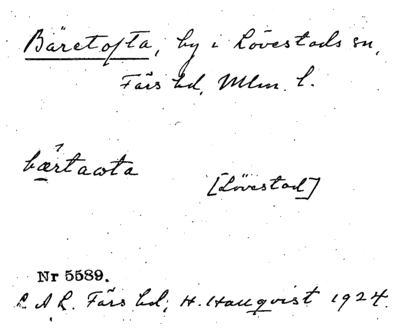 Bäretofta, by i Lövestads sn,
Färs hd, Mlm. l.
bærtaωta
[Lövestad]
Nr 5589.
L A L. Färs hd; H. Hallqvist 1924.